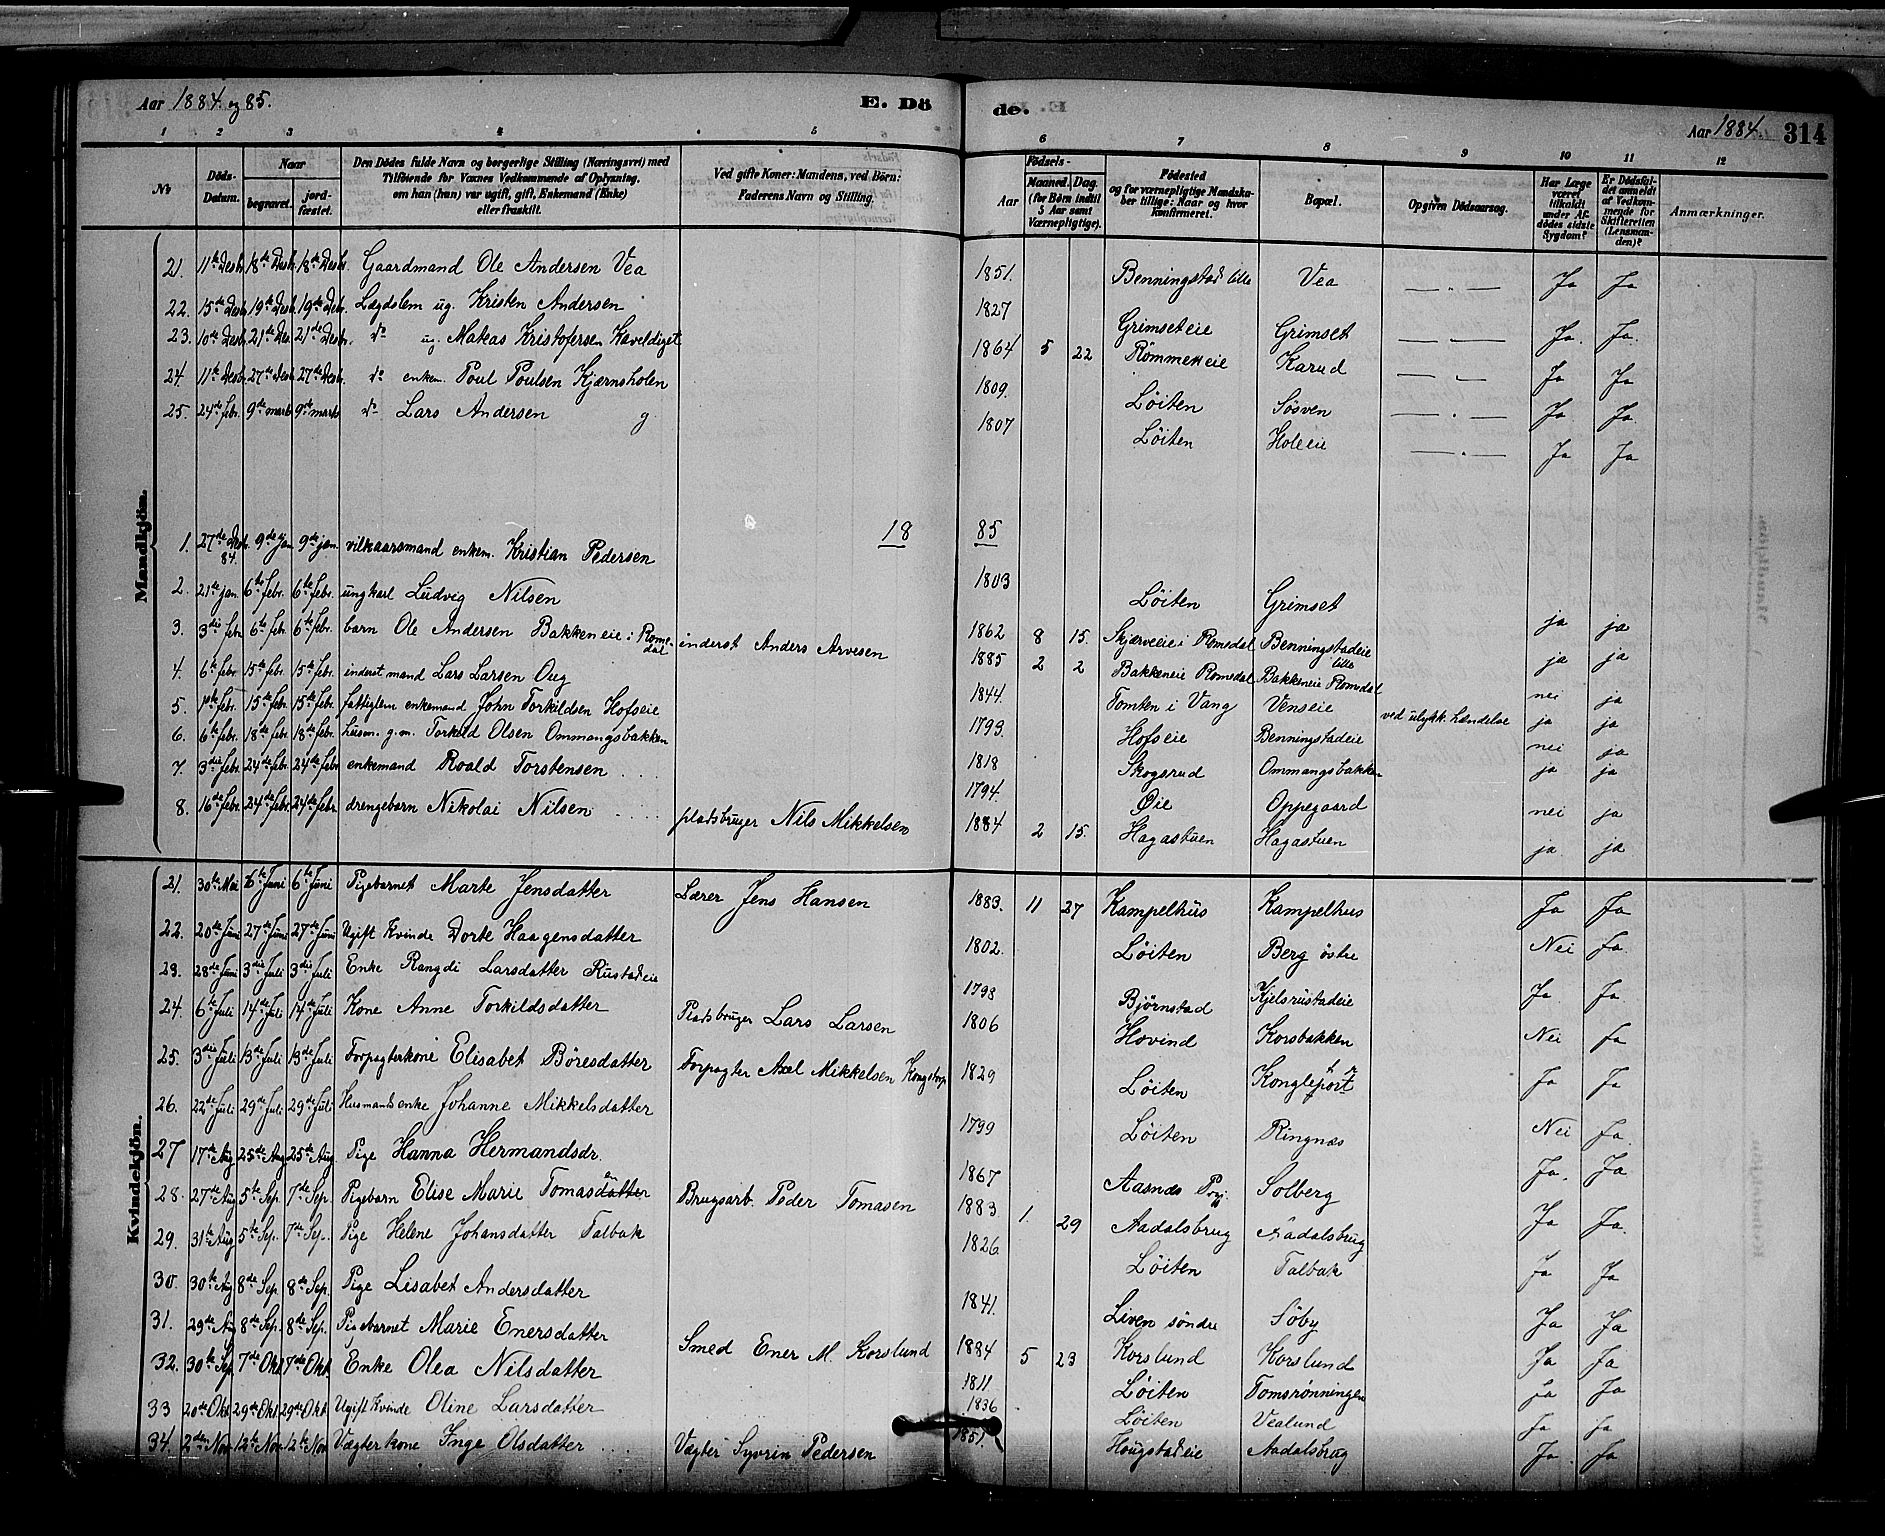 Aar 1884. og 85.
E. Dö
de.
Aar 1884.
314
1 2 3 4 5 6 7 8 9 10 11 12
No
Döds-Datum.
Naar
begravet.
jord-fæstet.
Den Dödes fulde Navn og borgerlige Stilling (Næringsvei) med
Tilföiende for Voxnes Vedkommende af Oplysning,
om han (hun) var ugift, gift, Enkemand (Enke)
eller fraskilt.
Ved gifte Koner: Mandens, ved Börn:
Faderens Navn og Stilling.
Födsels-
Aar
Maaned. Dag.
(for Börn indtil
5 Aar samt
Værnepligtige).
Födested
og for værnepligtige Mandska-
ber tillige: Naar og hvor
konfirmeret.
Bopæl.
Opgiven Dödsaarsag.
Har Læge
været
tilkaldt
under Af-
dödes sidste
Sygdom?
Er Dödsfal-
det anmeldt
af Vedkom-
mende for
Skifteretten
(Lensman-
den)?
Anmærkninger.
Mandkjön.
21. 11te Desb. 18de Desb. 18de Desb. Gaardmand Ole Andersen Vea 1851. Benningstad lille Vea — " — Ja Ja
22. 15de Desb. 19de Desb. 19de Deb. Lægdslem ug. Kristen Andersen 1827 Grimseteie Grimset — " — Ja. Ja.
23. 10de Desb. 21de Des. 21de Desb. do ug. Mateas Kristofersen Kaveldiget 1864 5 22 Römmeneie Karud — " — Ja Ja
24. 11te Desb. 27de Desb. 27de Desb. do enkem. Poul Poulsen Kjærnsholen 1809. Löiten Sösven — " — Ja Ja.
25. 24de febr. 9de marts 9de marts do Lars Andersen g 1807 Löiten Holeeie — " — Ja Ja
18 85
1. 27de Desb. 84. 9de jan 9de jan. vilkaarsmand enkem. Kristian Pedersen 1803 Löiten Grimset ja ja
2. 21de jan. 6te febr. 6te febr. ungkarl Ludvig Nilsen 1862 8 15. Skjærveeie i Romsdal Benningstadeie lille ja ja
3. 3die febr 6te febr. 6te febr. barn Ole Andersen Bakkeneie i Romedal inderst Anders Arvesen 1885 2 2 Bakkeneie Romsdal Bakkeneie Romsdal nei ja
4. 6te febr 15de febr. 15de febr. inderst mand Lars Larsen Oug 1844. Tomten i Vang Venseie ved ulykk. hændelse ja ja
5. 1ste febr. 15de febr. 15de febr. fattiglem enkemand John Torkildsen Hofseie 1793. Hofseie Benningstadeie nei ja
6. 6te febr. 18de febr. 18de febr. husm. g.m. Torkild Olsen Ommangsbakken 1818 Skogsrud Ommangsbakken ja ja
7. 3die febr. 24de febr. 24de febr enkemand Roald Torstensen 1794. Öie Oppegaard nei ja
8. 16de febr. 24de febr. 24de febr. drengebarn Nikolai Nilsen pladsbruger Nils Mikkelsen 1884 2 15. Hagastuen Hagastuen ja. ja
Kvindekjön.
21. 30te Mai 6te Juni 6te Juni Pigebarnet Marte Jensdatter Lærer Jens Hansen 1883. 11 27 Kampelhus Kampelhus Ja Ja
22. 20de Juni 27de Juni 27de Juni Ugift Kvinde Dorte Haagensdatter 1802. Löiten Berg östre Nei Ja.
23. 28de Juni 3die Juli 3die Juli Enke Rangdi Larsdatter Rustadeie 1798 Björnstad Kjelsrustadeie Ja Ja.
24. 6te Juli 14de Juli 14de Juli Kone Anne Torkildsdatter Pladsbruger Lars Larsen 1806 Hovind Korsbakken Nei Ja
25. 3die Juli 13de Juli 13de Juli Forpagterkone Elisabet Böresdatter Forpagter Axel Mikkelsen 1829 Löiten Ja Ja
26. 22de Juli 29de Juli 29de Juli Husmands enke Johanne Mikkelsdatter 1799 Löiten Ringnæs Nei Ja.
27 17de Aug 25de Aug 25de Aug. Pige Hanna Hermandsdr. 1867 Aasnæs Prgj. Solberg Ja. Ja
28. 27de Aug 5te Sep. 7de Sep. Pigebarn Elise Marie Tomasdatter Brugsarb. Peder Tomasen 1883 1. 29 Aadalsbrug Aadalsbrug Ja Ja.
29. 31te Aug 5te Sep. 7de Sep. Pige Helene Johansdatter Talbak 1826 Löiten Talbak Ja Ja
30. 30te Aug 8de Sep. 8de Sep. Pige Lisabet Andersdatter 1841. Liven söndre Söby Ja Ja
31. 29de Aug 8de Sep. 8de Sep. Pigebarnet Marie Enersdatter Smed Ener M. Korslund 1884 5 23 Korslund Korslund Ja Ja
32. 30te Sep. 7de Okt 7de Okt. Enke Olea Nilsdatter 1811 Löiten Tomsrönningen Ja Ja
33 20de Okt. 29de Okt. 29de Okt. Ugift Kvinde Oline Larsdatter 1836 Löiten Vealund Ja Ja
34. 2den Nov. 12te Nov. 12te Nov Vægterkone Inge Olsdatter Vægter Syvrin Pedersen 1851. Hougstadeie Aadalsbrug Ja. Ja